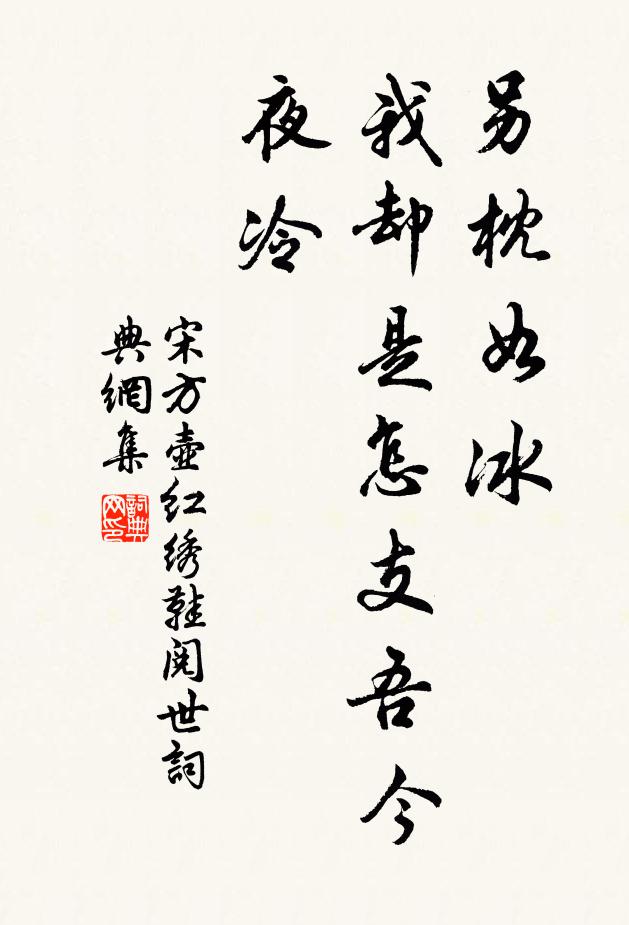 另枕如冰
我却是怎支吾今
夜冷
宋方壶红绣鞋阅世詞
典網集
詞典
网印